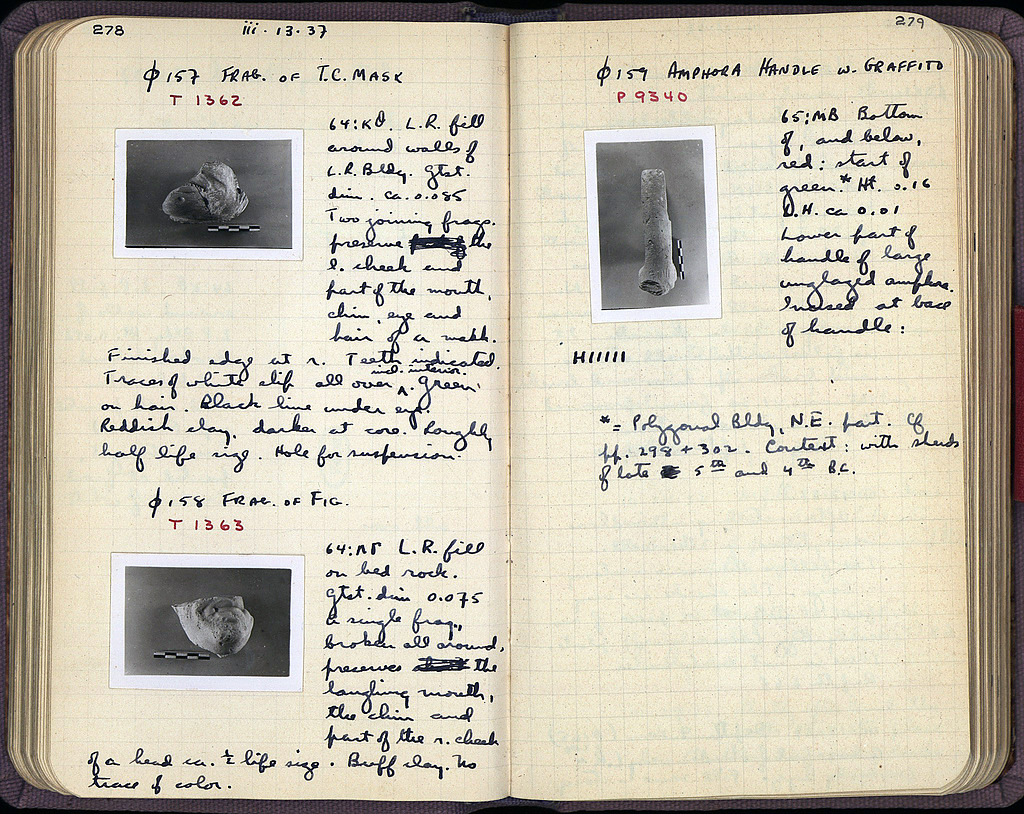 278
iii · 13 · 37
φ 157 FRAG. OF T.C. MASK
T 1362
64:ΚΘ. L.R. fill
around walls of
L.R. Bldg. Gtst.
dim. ca. 0.085
Two joining frags.
preserve the
l. cheek and
part of the mouth,
chin, eye and
hair of a mask.
Finished edge at r. Teeth indicated.
incl. interior.
Traces of white slip all over ^. Green
on hair. Black line under eye.
Reddish clay, darker at core. Roughly
half life size. Hole for suspension.
φ 158 FRAG. OF FIG.
T 1363
L.R. fill
on bed rock.
Gtst. dim 0.075
A single frag.,
broken all around,
preserves the
laughing mouth,
the chin and
part of the r. cheek
of a head ca. ½ life size. Buff clay. No
trace of color.
279
φ 159 AMPHORA HANDLE W. GRAFFITO
P 9340
65:MB Bottom
of, and below,
red: start of
green.* Ht. 0.16
L.H. ca 0.01
Lower part of
handle of large
unglazed amphora.
Incised at base
of handle:
HIIIII
*= Polygonal Bldg, N.E. part. Cf
pp. 298 + 302. Context: with sherds
of late 5th and 4th B.C.